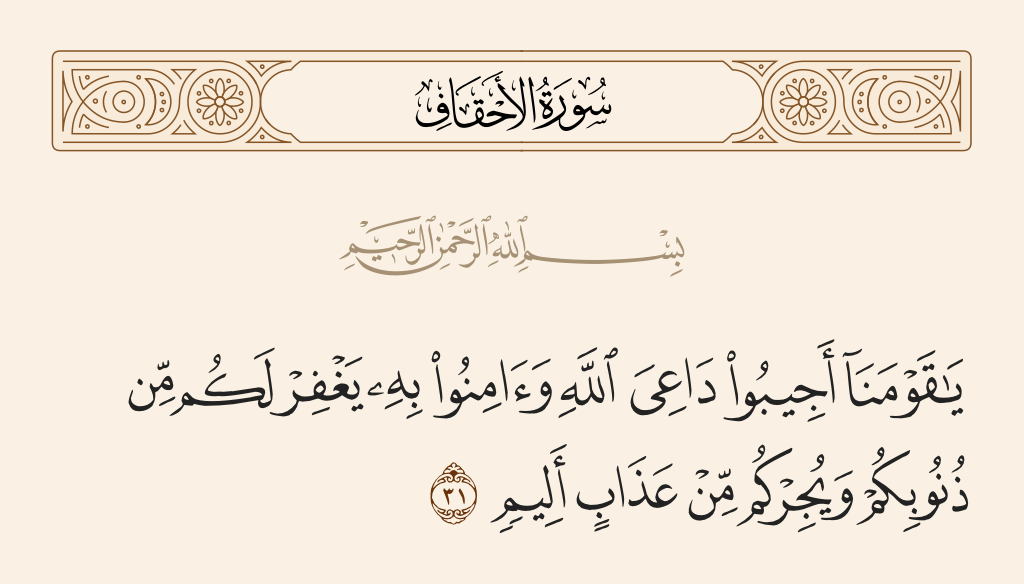 سُورَةُ الأَحْقَافِ
بِسْمِ ٱللَّهِ ٱلرَّحْمَٰنِ ٱلرَّحِيمِ
يَـٰقَوْمَنَآ أَجِيبُوا۟ دَاعِىَ ٱللَّهِ وَءَامِنُوا۟ بِهِۦ يَغْفِرْ لَكُم مِّن
ذُنُوبِكُمْ وَيُجِرْكُم مِّنْ عَذَابٍ أَلِيمٍ ٣١